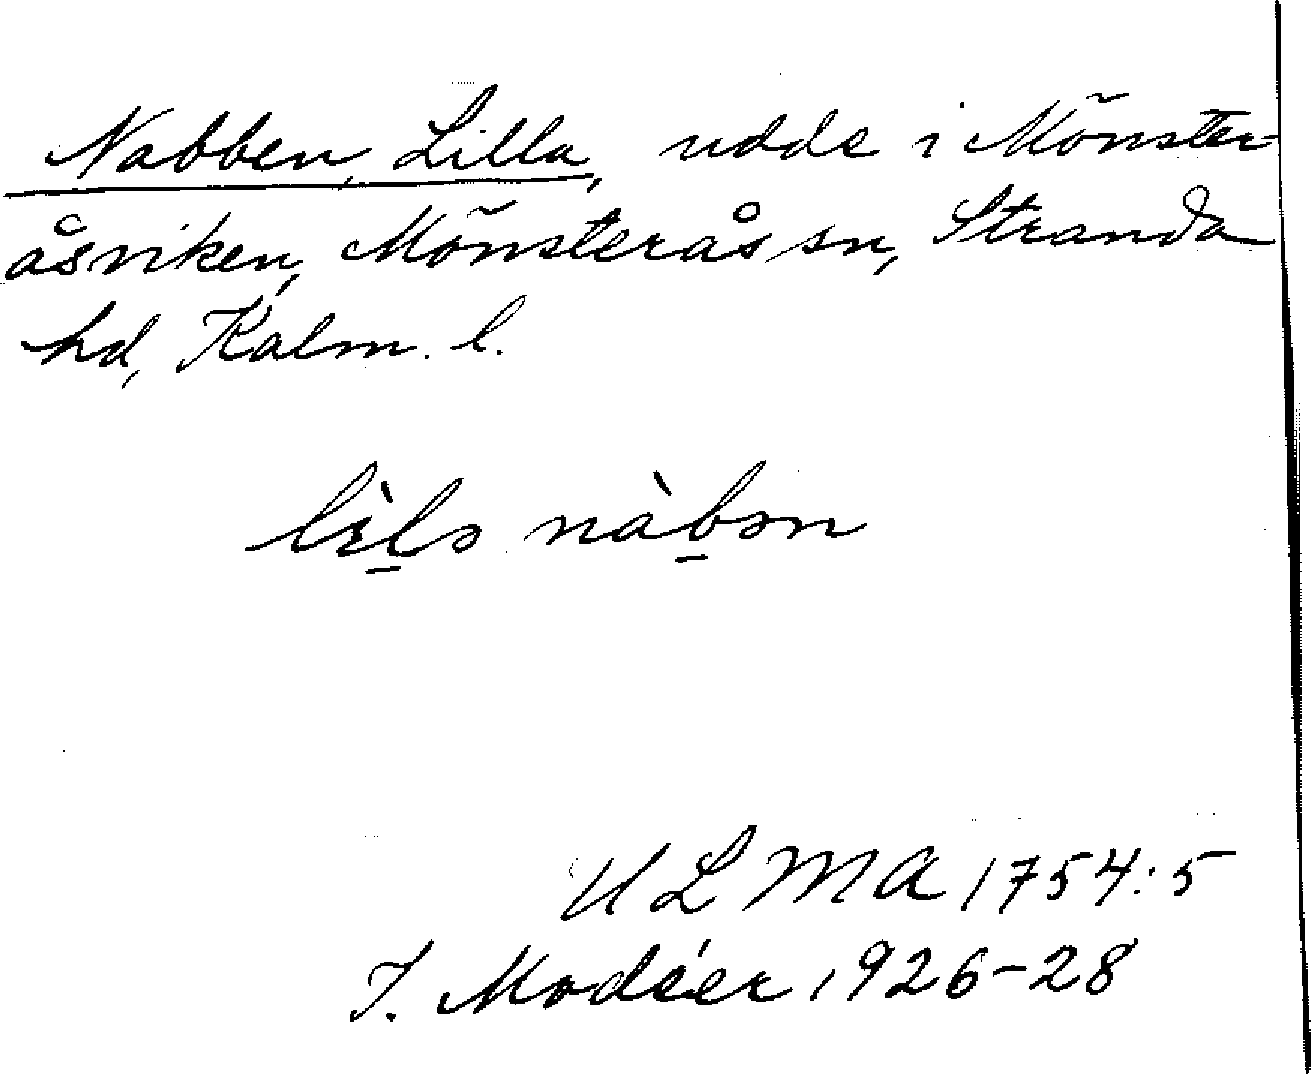 Nabben, Lilla, udde i Mönster-
åsviken, Mönsterås sn, Stranda
hd, Kalm. l.
lìl̠ə nàb̠ən
ULMA 1754:5
I. Modéer 1926-28